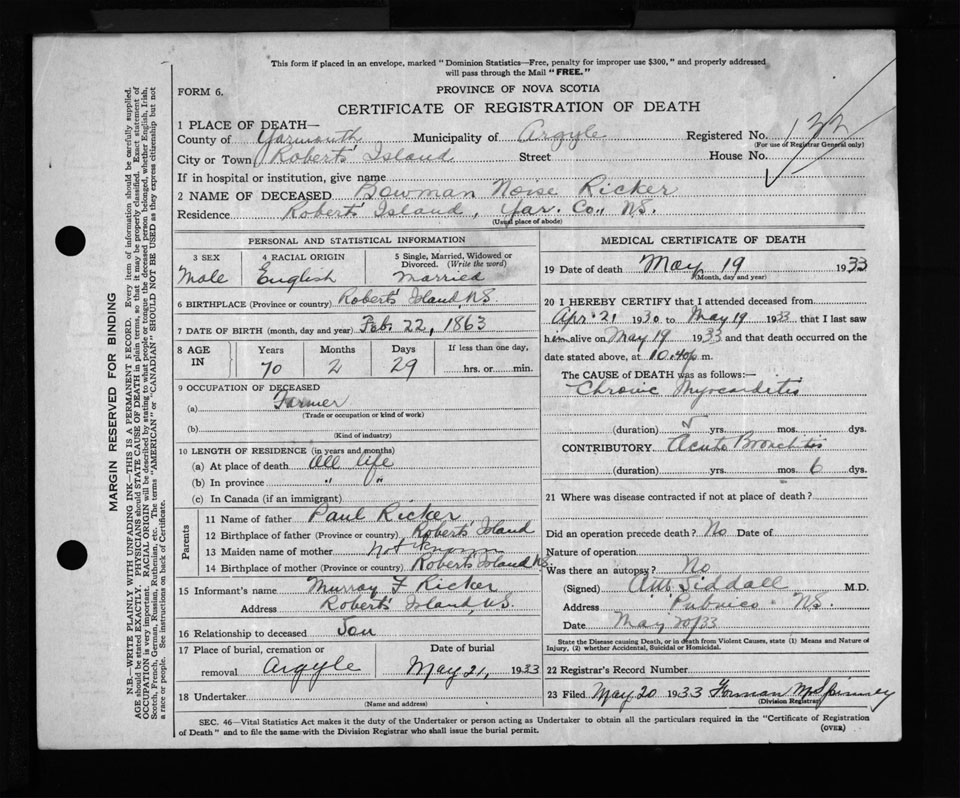 This form if placed in an envelope, marked "Dominion Statistics—Free, penalty for improper use $300," and properly addressed
will pass through the Mail "FREE."
FORM 6.
PROVINCE OF NOVA SCOTIA
CERTIFICATE OF REGISTRATION OF DEATH
1 PLACE OF DEATH—
County of Yarmouth Municipality of Argyle Registered No. 132
(For use of Registrar General only)
City or Town Roberts Island Street House No.
If in hospital or institution, give name
2 NAME OF DECEASED Bowman Noise Ricker
Residence Roberts' Island, Yar. Co., N.S.
(Usual place of abode)
PERSONAL AND STATISTICAL INFORMATION
3 SEX 4 RACIAL ORIGIN 5 Single, Married, Widowed or
Divorced. (Write the word)
Male English Married
6 BIRTHPLACE (Province or country) Roberts' Island, N.S.
7 DATE OF BIRTH (month, day and year) Feb. 22, 1863
8 AGE IN Years Months Days If less than one day,
70 2 29 hrs. or min.
9 OCCUPATION OF DECEASED
(a) Farmer
(Trade or occupation or kind of work)
(b)
(Kind of industry)
10 LENGTH OF RESIDENCE (in years and months)
(a) At place of death All life
(b) In province " "
(c) In Canada (if an immigrant)
Parents
11 Name of father Paul Ricker
12 Birthplace of father (Province or country) Roberts' Island
13 Maiden name of mother not known
14 Birthplace of mother (Province or country) Roberts Island N.S.
15 Informant's name Murray F Ricker
Address Roberts' Island, N.S.
16 Relationship to deceased Son
17 Place of burial, cremation or Date of burial
removal Argyle May 21, 1933
18 Undertaker
(Name and address)
MEDICAL CERTIFICATE OF DEATH
19 Date of death May 19 1933
(Month, day and year)
20 I HEREBY CERTIFY that I attended deceased from
Apr. 21 1930 to May 19 1933 that I last saw
him alive on May 19 1933 and that death occurred on the
date stated above, at 10.40 p.m.
The CAUSE of DEATH was as follows:—
Chronic Myocarditis
(duration) 5 yrs. mos. dys.
CONTRIBUTORY Acute Bronchitis
(duration) yrs. mos. 6 dys.
21 Where was disease contracted if not at place of death?
Did an operation precede death? No Date of
Nature of operation
Was there an autopsy? No
(Signed) Siddall M.D.
Address Pubnico N.S.
Date May 20/33
State the Disease causing Death, or in death from Violent Causes, state (1) Means and Nature of
Injury, (2) whether Accidental, Suicidal or Homicidal.
22 Registrar's Record Number
23 Filed May 20 1933 Forman
(Division Registrar)
SEC. 46—Vital Statistics Act makes it the duty of the Undertaker or person acting as Undertaker to obtain all the particulars required in the "Certificate of Registration
of Death" and to file the same with the Division Registrar who shall issue the burial permit.
(OVER)
MARGIN RESERVED FOR BINDING
N.B.—WRITE PLAINLY WITH UNFADING INK—THIS IS A PERMANENT RECORD. Every item of information should be carefully supplied.
AGE should be stated EXACTLY. PHYSICIANS should STATE CAUSE OF DEATH in plain terms, so that it may be properly classified. Exact statement of
OCCUPATION is very important. RACIAL ORIGIN will be described by stating to what people or tongue the deceased person belonged, whether English, Irish,
Scotch, French, German, Russian, Ruthenian, etc. The terms "AMERICAN" or "CANADIAN" SHOULD NOT BE USED as they express citizenship but not
a race or people. See instructions on back of Certificate.